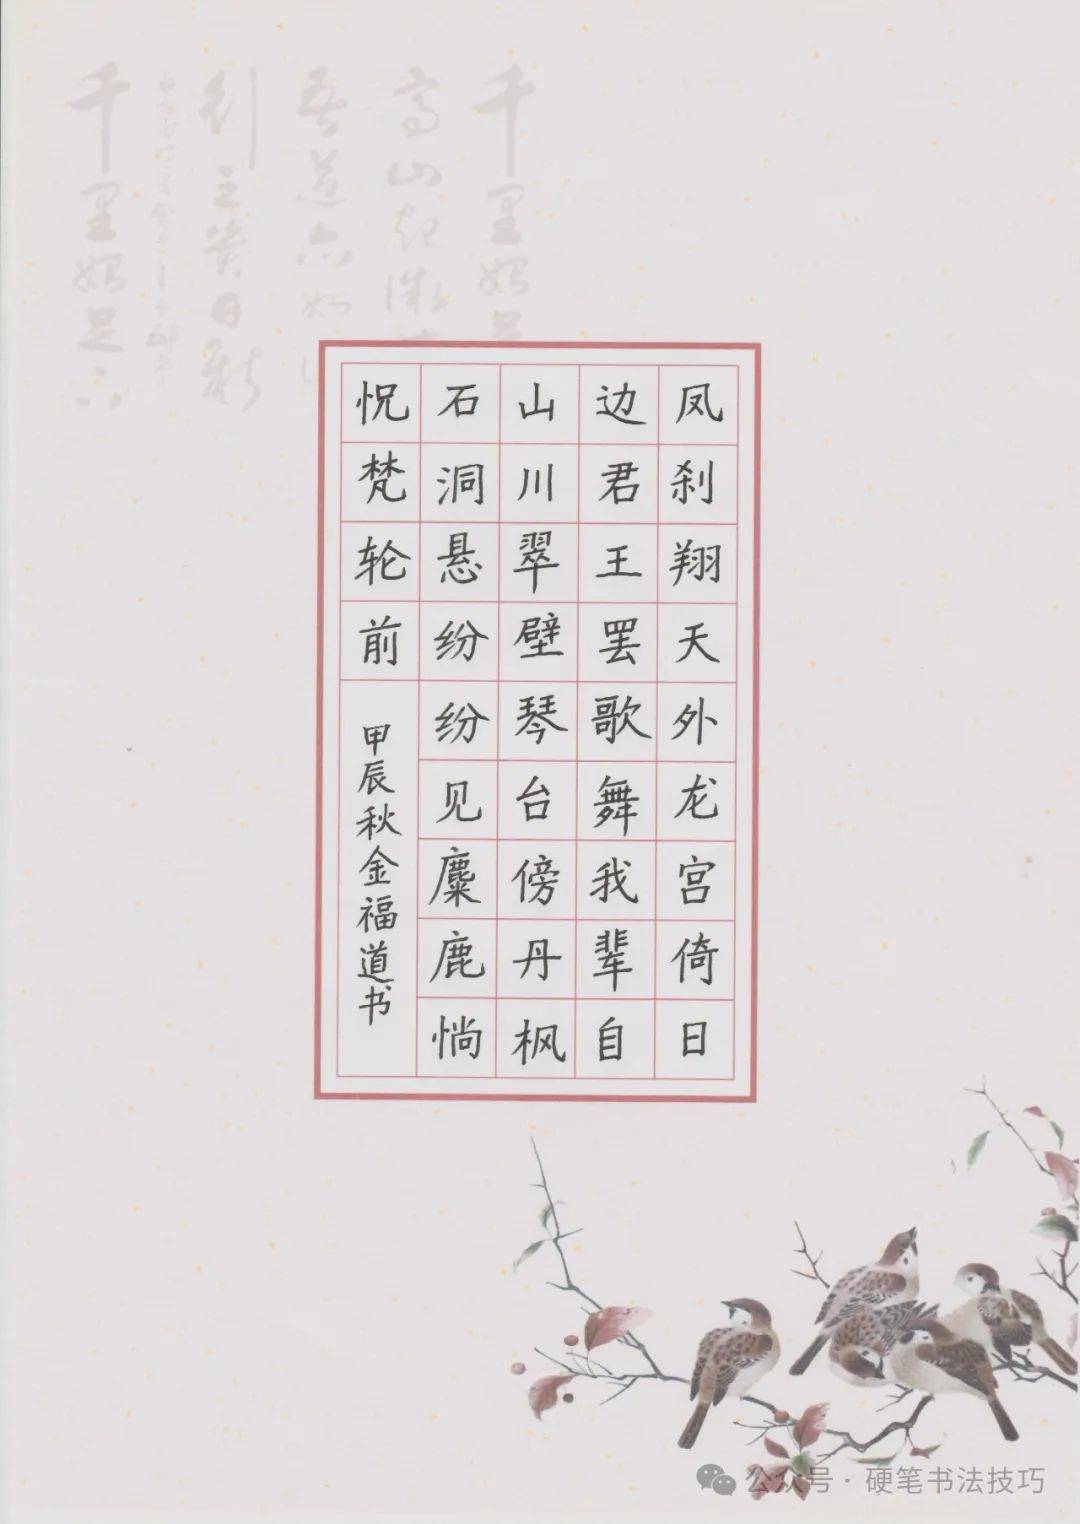 千里始足
高山起微
吾道亦如
行之貴日新
千里始足下
凤刹翔天外龙宫倚日
边君王罢歌舞我辈自
山川翠壁琴台傍丹枫
石洞悬纷纷见麋鹿惝
怳梵轮前
甲辰秋金福道书
公众号·硬笔书法技巧